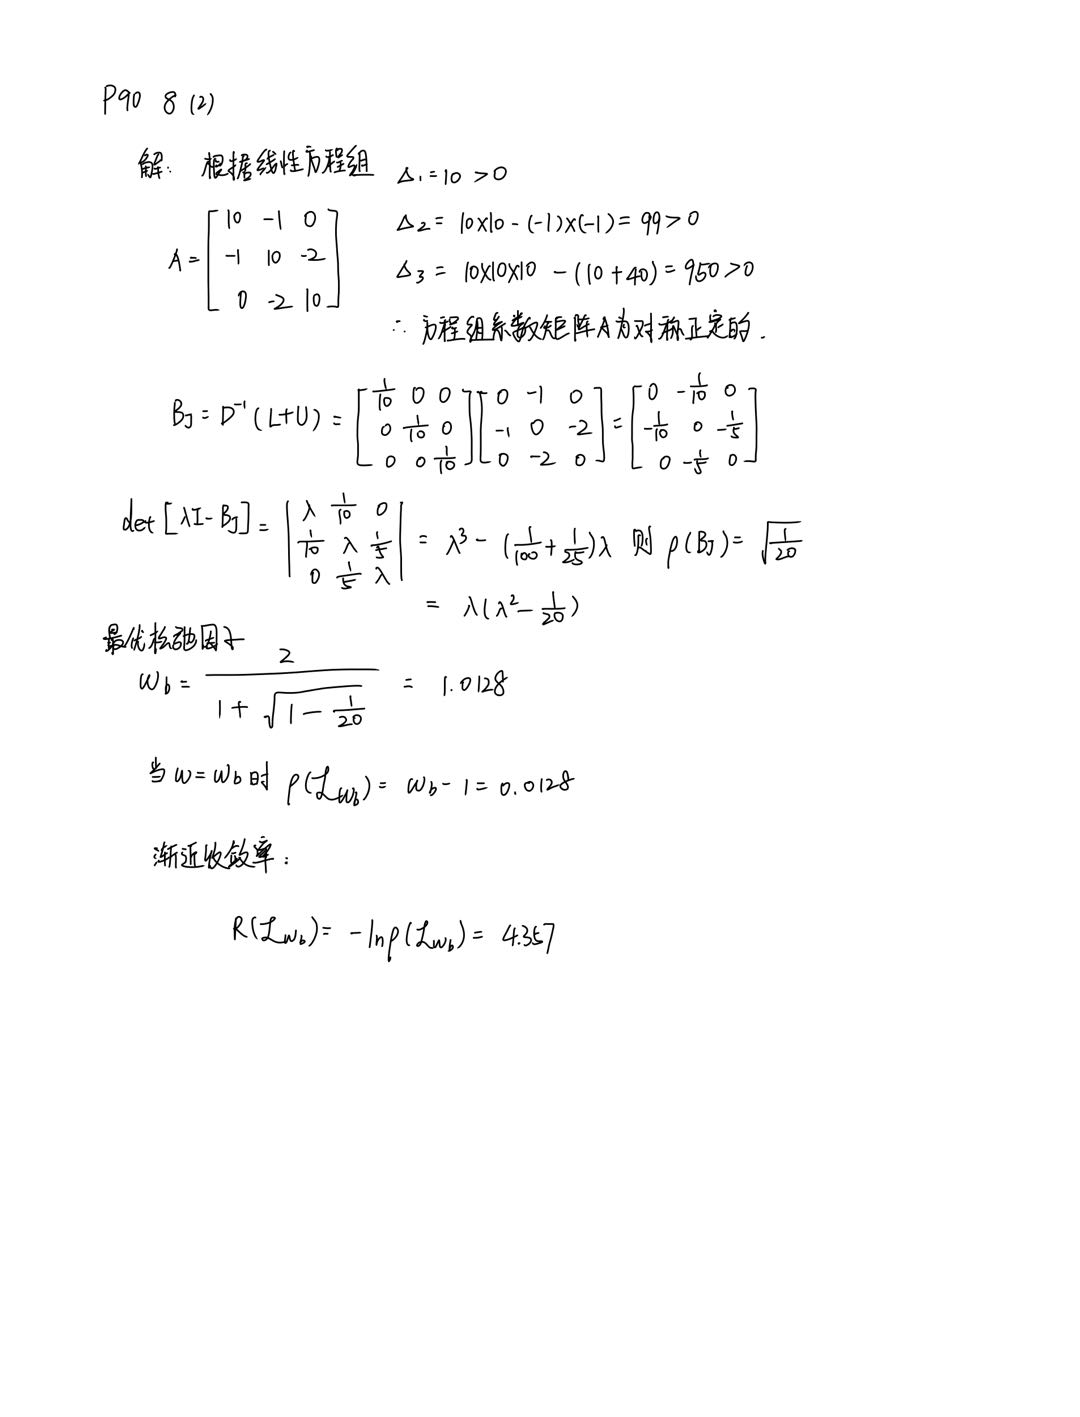 P90 8 (2)
解: 根据线性方程组 Δ₁=10 >0
A = [10 -1 0; -1 10 -2; 0 -2 10] Δ₂ = 10×10 - (-1)×(-1) = 99 > 0
Δ₃ = 10×10×10 - (10+40) = 950 > 0
∴ 方程组系数矩阵A为对称正定的.
B_J = D⁻¹(L+U) = [1/10 0 0; 0 1/10 0; 0 0 1/10][0 -1 0; -1 0 -2; 0 -2 0] = [0 -1/10 0; -1/10 0 -1/5; 0 -1/5 0]
det[λI-B_J] = |λ 1/10 0; 1/10 λ 1/5; 0 1/5 λ| = λ³ - (1/100 + 1/25)λ 则 ρ(B_J) = √(1/20)
= λ(λ² - 1/20)
最优松弛因子
ω_b = 2/(1+√(1-1/20)) = 1.0128
当 ω=ω_b 时 ρ(ℒ_ωb) = ω_b - 1 = 0.0128
渐近收敛率:
R(ℒ_ωb) = -lnρ(ℒ_ωb) = 4.357